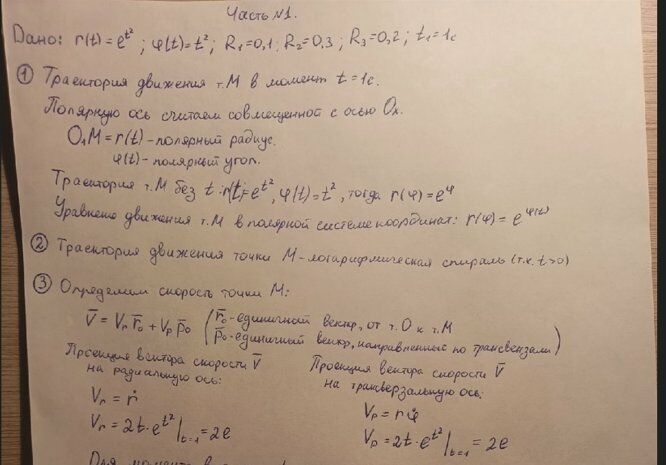 Часть №1.
Дано: r(t)=e^{t²}; φ(t)=t²; R₁=0,1; R₂=0,3; R₃=0,2; t₁=1с
① Траектория движения т.М в момент t=1с.
Полярную ось считаем совмещенной с осью Ox.
O₁M=r(t)-полярный радиус.
φ(t)-полярный угол.
Траектория т.М без t: r(t)=e^{t²}, φ(t)=t², тогда r(φ)=e^φ
Уравнение движения т.М в полярной системе координат: r(φ)=e^{φ(t)}
② Траектория движения точки М-логарифмическая спираль (т.к. t>0)
③ Определим скорость точки М:
V̄ = Vᵣ r̄₀ + Vₚ p̄₀ (r̄₀-единичный вектр, от т.О к т.М
p̄₀-единичный вектр, направленный по трансверзали)
Проекция вектора скорости V̄
на радиальную ось:
Vᵣ = ṙ
Vᵣ = 2t·e^{t²}|ₜ₌₁ = 2e
Проекция вектора скорости V̄
на трансверзальную ось:
Vₚ = rφ̇
Vₚ = 2t·e^{t²}|ₜ₌₁ = 2e
Для